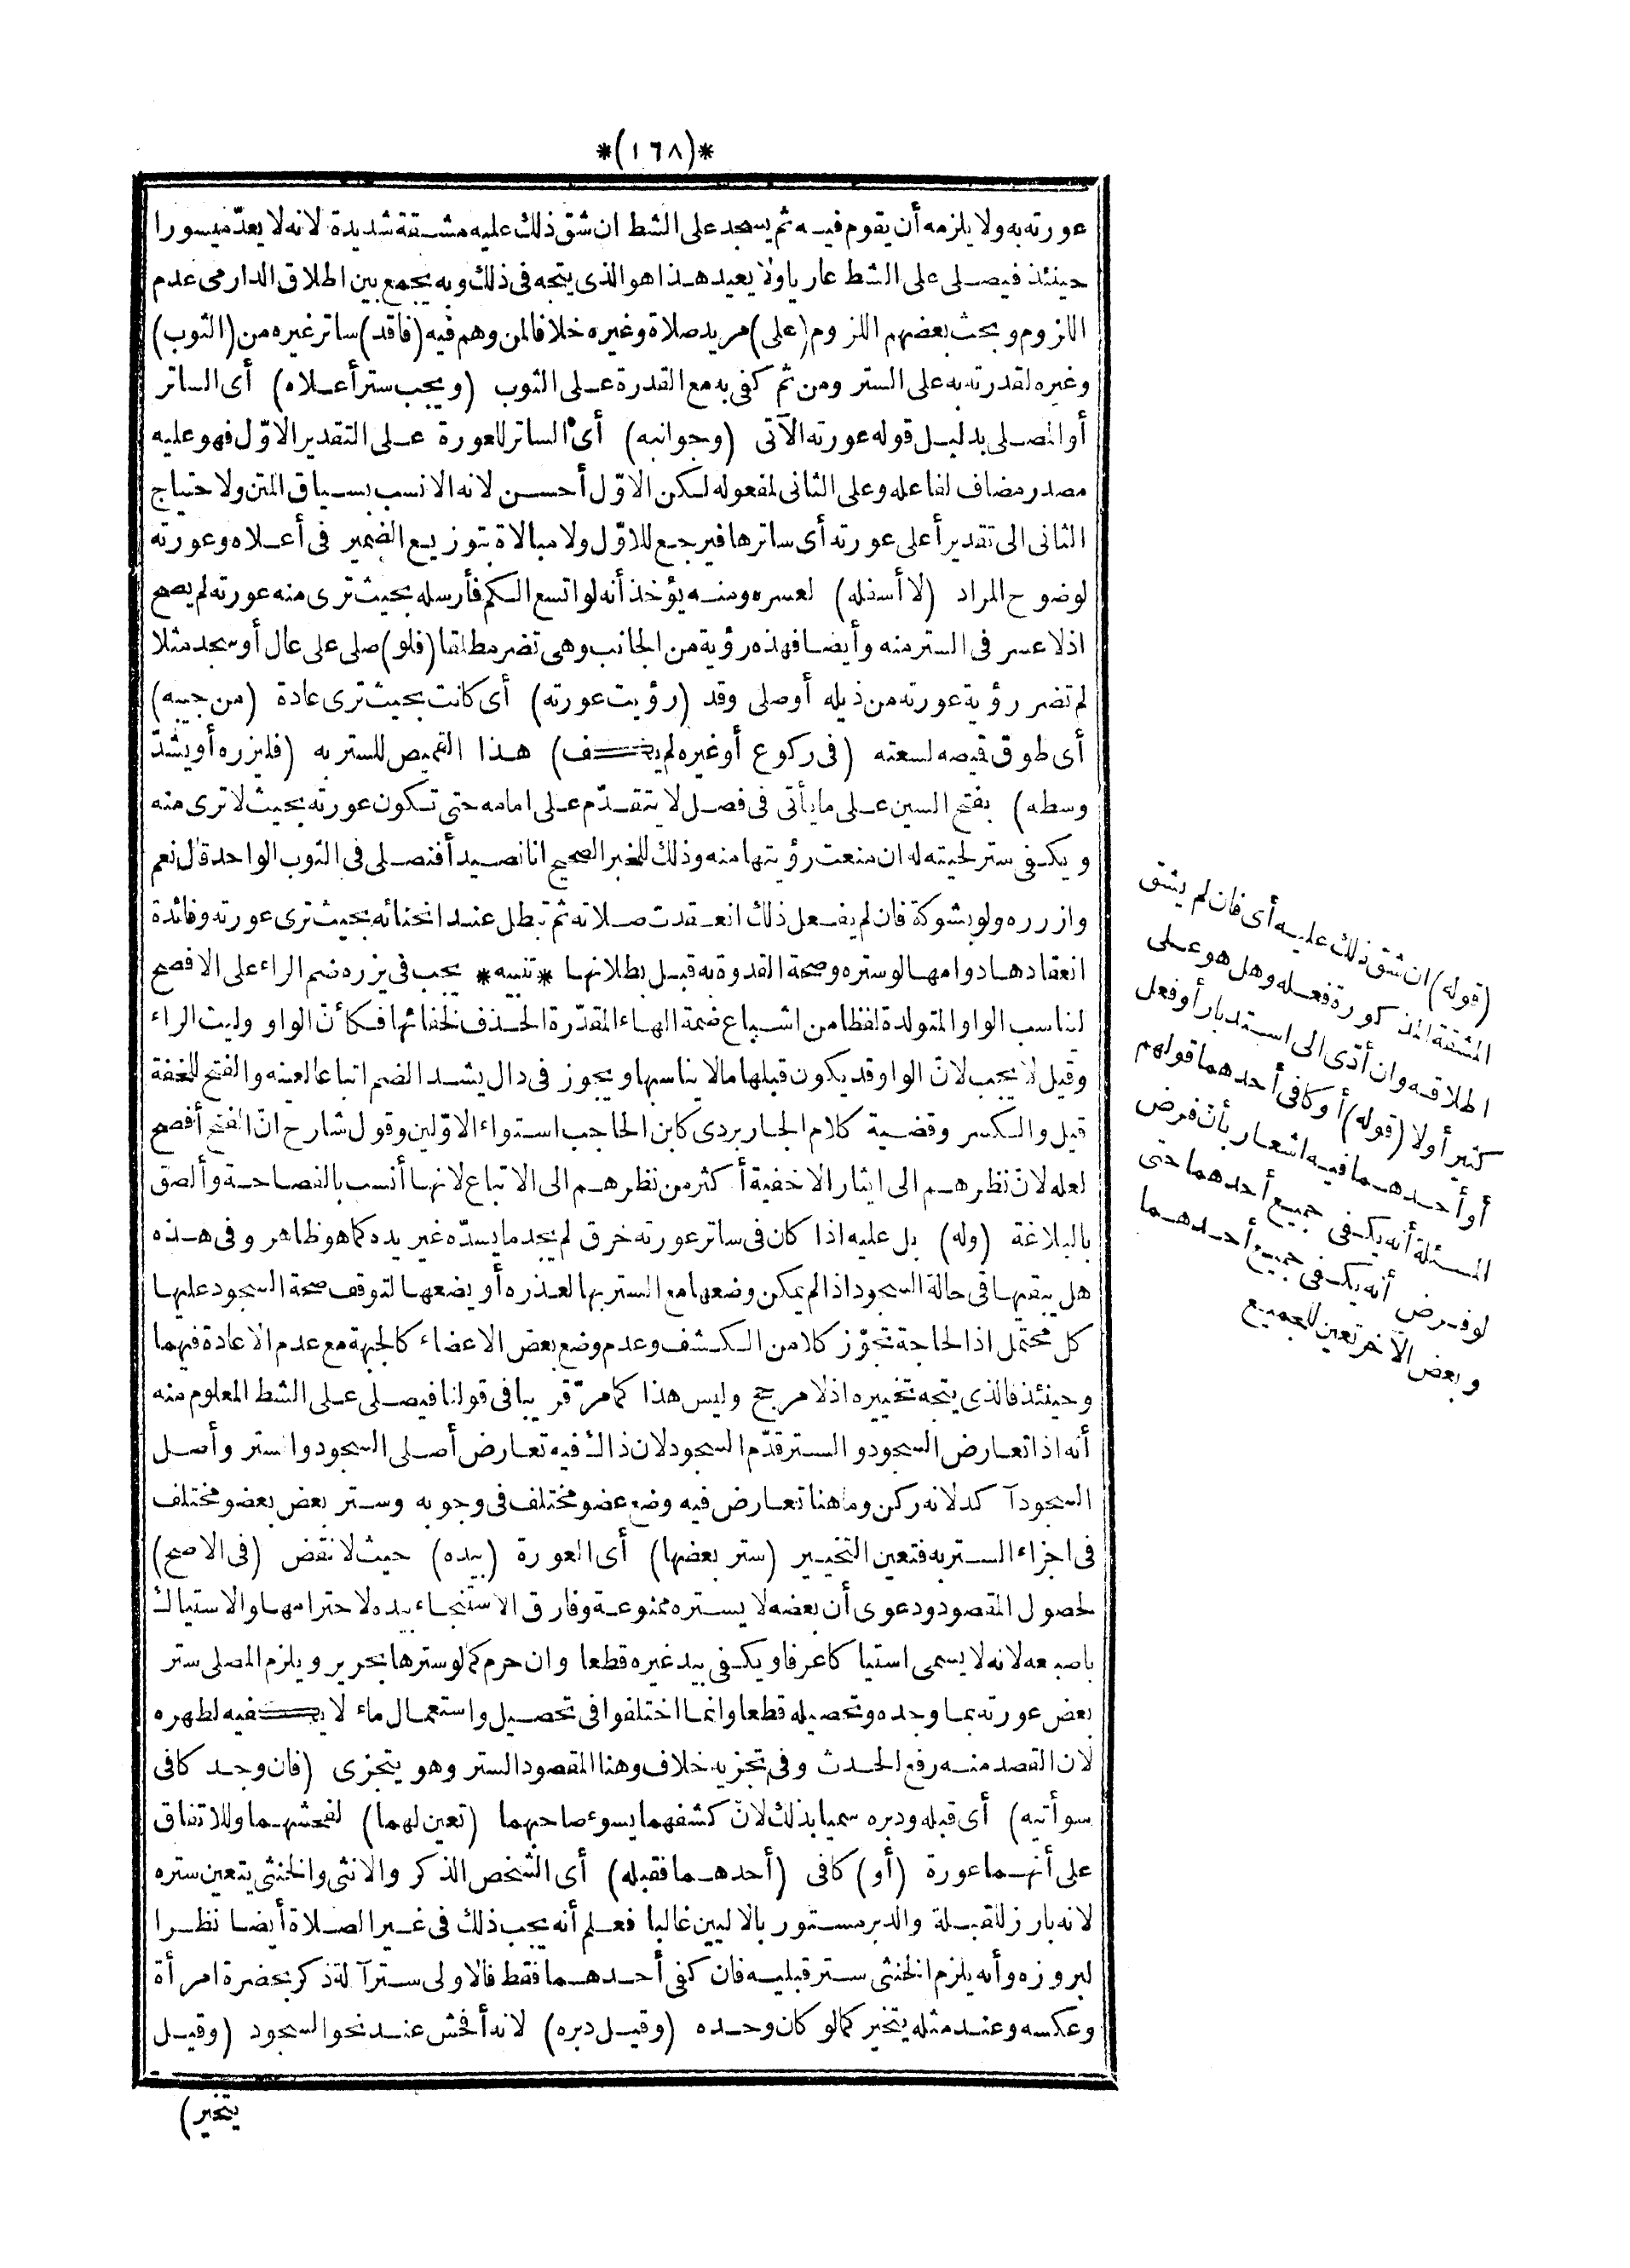 *(١٦٨)*
عورته به ولا يلزمه أن يقوم فيه ثم يسجد على الشط ان شق ذلك عليه مشقة شديدة لانه لا يعدّ ميسورا
حينئذ فيصلى على الشط عاريا ولا يعيد هذا هو الذى يتجه فى ذلك وبه يجمع بين اطلاق الدارمى عدم
اللزوم وبحث بعضهم اللزوم (على) مريد صلاة وغيره خلافا لمن وهم فيه (فاقد) ساتر غيره من (الثوب)
وغيره لقدرته به على الستر ومن ثم كفى به مع القدرة على الثوب (ويجب ستر أعلاه) أى الساتر
أو المصلى بدليل قوله عورته الآتى (وجوانبه) أى الساتر للعورة على التقدير الاوّل فهو عليه
مصدر مضاف لفاعله وعلى الثانى لمفعوله لكن الاوّل أحسن لانه الانسب بسياق المتن ولاحتياج
الثانى الى تقدير أعلى عورته أى ساترها فيرجع للاوّل ولا مبالاة بتوزيع الضمير فى أعلاه وعورته
لوضوح المراد (لا أسفله) لعسره ومنه يؤخذ أنه لو اتسع الكم فأرسله بحيث ترى منه عورته لم يصح
اذ لا عسر فى الستر منه وأيضا فهذه رؤية من الجانب وهى تضر مطلقا (فلو) صلى على عال أو سجد مثلا
لم تضر رؤية عورته من ذيله أو صلى وقد (رؤيت عورته) أى كانت بحيث ترى عادة (من جيبه)
أى طوق قميصه لسعته (فى ركوع أو غيره لم يكف) هذا القميص للستر به (فليزره أو يشدّ
وسطه) بفتح السين على ما يأتى فى فصل لا يتقدّم على امامه حتى تكون عورته بحيث لا ترى منه
ويكفى ستر لحيته له ان منعت رؤيتها منه وذلك للخبر الصحيح انا نصيد أفنصلى فى الثوب الواحد قال نعم
وازرره ولو بشوكة فان لم يفعل ذلك انعقدت صلاته ثم تبطل عند انحنائه بحيث ترى عورته وفائدة
انعقادها دوامها لو ستره وصحة القدوة به قبل بطلانها *تنبيه* يجب فى يزره ضم الراء على الافصح
ليناسب الواو المتولدة لفظا من اشباع ضمة الهاء المقدّرة الحذف لخفائها فكأنّ الواو وليت الراء
وقيل لا يجب لانّ الواو قد يكون قبلها ما لا يناسبها ويجوز فى دال يشد الضم اتباعا لعينه والفتح للخفة
قيل والكسر وقضية كلام الجاربردى كابن الحاجب استواء الاوّلين وقول شارح انّ الفتح أفصح
لعله لانّ نظرهم الى ايثار الاخفية أكثر من نظرهم الى الاتباع لانها أنسب بالفصاحة وألصق
بالبلاغة (وله) بل عليه اذا كان فى ساتر عورته خرق لم يجد ما يسدّه غير يده كما هو ظاهر وفى هذه
هل يبقيها فى حالة السجود اذا لم يمكن وضعها مع الستر بها لعذره أو يضعها لتوقف صحة السجود عليها
كل محتمل اذ الحاجة تجوّز كلا من الكشف وعدم وضع بعض الاعضاء كالجبهة مع عدم الاعادة فيهما
وحينئذ فالذى يتجه تخييره اذ لا مرجح وليس هذا كما مرّ قريبا فى قولنا فيصلى على الشط المعلوم منه
أنه اذا تعارض السجود والستر قدّم السجود لان ذاك فيه تعارض أصلى السجود والستر وأصل
السجود آكد لانه ركن وما هنا تعارض فيه وضع عضو مختلف فى وجوبه وستر بعض بعضو مختلف
فى اجزاء الستر به فتعين التخيير (ستر بعضها) أى العورة (بيده) حيث لا نقض (فى الاصح)
لحصول المقصود ودعوى أن بعضه لا يستره ممنوعة وفارق الاستنجاء بيده لاحترامها والاستياك
باصبعه لانه لا يسمى استياكا عرفا ويكفى بيد غيره قطعا وان حرم كما لو سترها بحرير ويلزم المصلى ستر
بعض عورته بما وجده وتحصيله قطعا وانما اختلفوا فى تحصيل واستعمال ماء لا يكفيه لطهره
لان القصد منه رفع الحدث وفى تجزيه خلاف وهنا المقصود الستر وهو يتجزى (فان وجد كافى
سوأتيه) أى قبله ودبره سميا بذلك لانّ كشفهما يسوء صاحبهما (تعين لهما) لفحشهما وللاتفاق
على أنهما عورة (أو) كافى (أحدهما فقبله) أى الشخص الذكر والانثى والخنثى يتعين ستره
لانه بارز للقبلة والدبر مستور بالاليين غالبا فعلم أنه يجب ذلك فى غير الصلاة أيضا نظرا
لبروزه وأنه يلزم الخنثى ستر قبليه فان كفى أحدهما فقط فالاولى ستر آلة ذكر بحضرة امرأة
وعكسه وعند مثله يتخير كما لو كان وحده (وقيل دبره) لانه أفحش عند نحو السجود (وقيل
يتخير)
(قوله) ان شق ذلك عليه أى فان لم يشق
المشقة المذكورة فعله وهل هو على
اطلاقه وان أدّى الى استدبار أو فعل
كثير أولا (قوله) أو كافى أحدهما قولهم
أو أحدهما فيه اشعار بأنّ فرض
المسئلة أنه يكفى جميع أحدهما حتى
لو فرض أنه يكفى جميع أحدهما
وبعض الآخر تعين للجميع